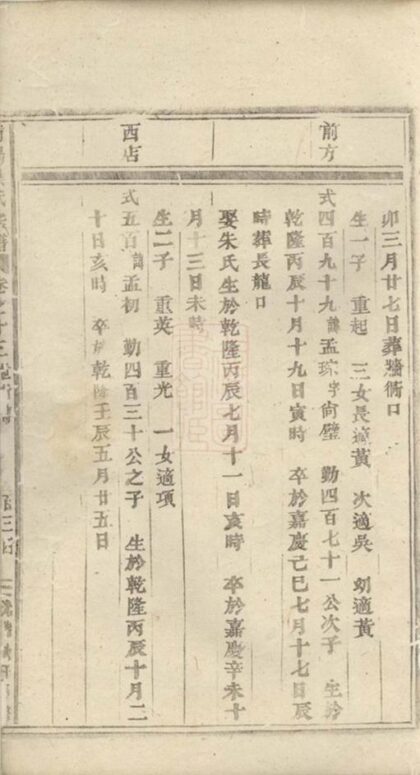 前方
西店
卯三月廿七日葬牆衕口
生一子 重起 三女長適黃 次適吳 幼適黃
式四百九十九諱孟琮字尙璧 勤四百七十一公次子 生於
乾隆丙辰十月十九日寅時 卒於嘉慶己巳七月十七日辰
時葬長龍口
娶朱氏生於乾隆丙辰七月十一日亥時 卒於嘉慶辛未十
月十三日未時
生二子 重英 重光 一女適項
式五百諱孟初 勤四百三十公之子 生於乾隆丙辰十月二
十日亥時 卒於乾隆壬辰五月廿五日